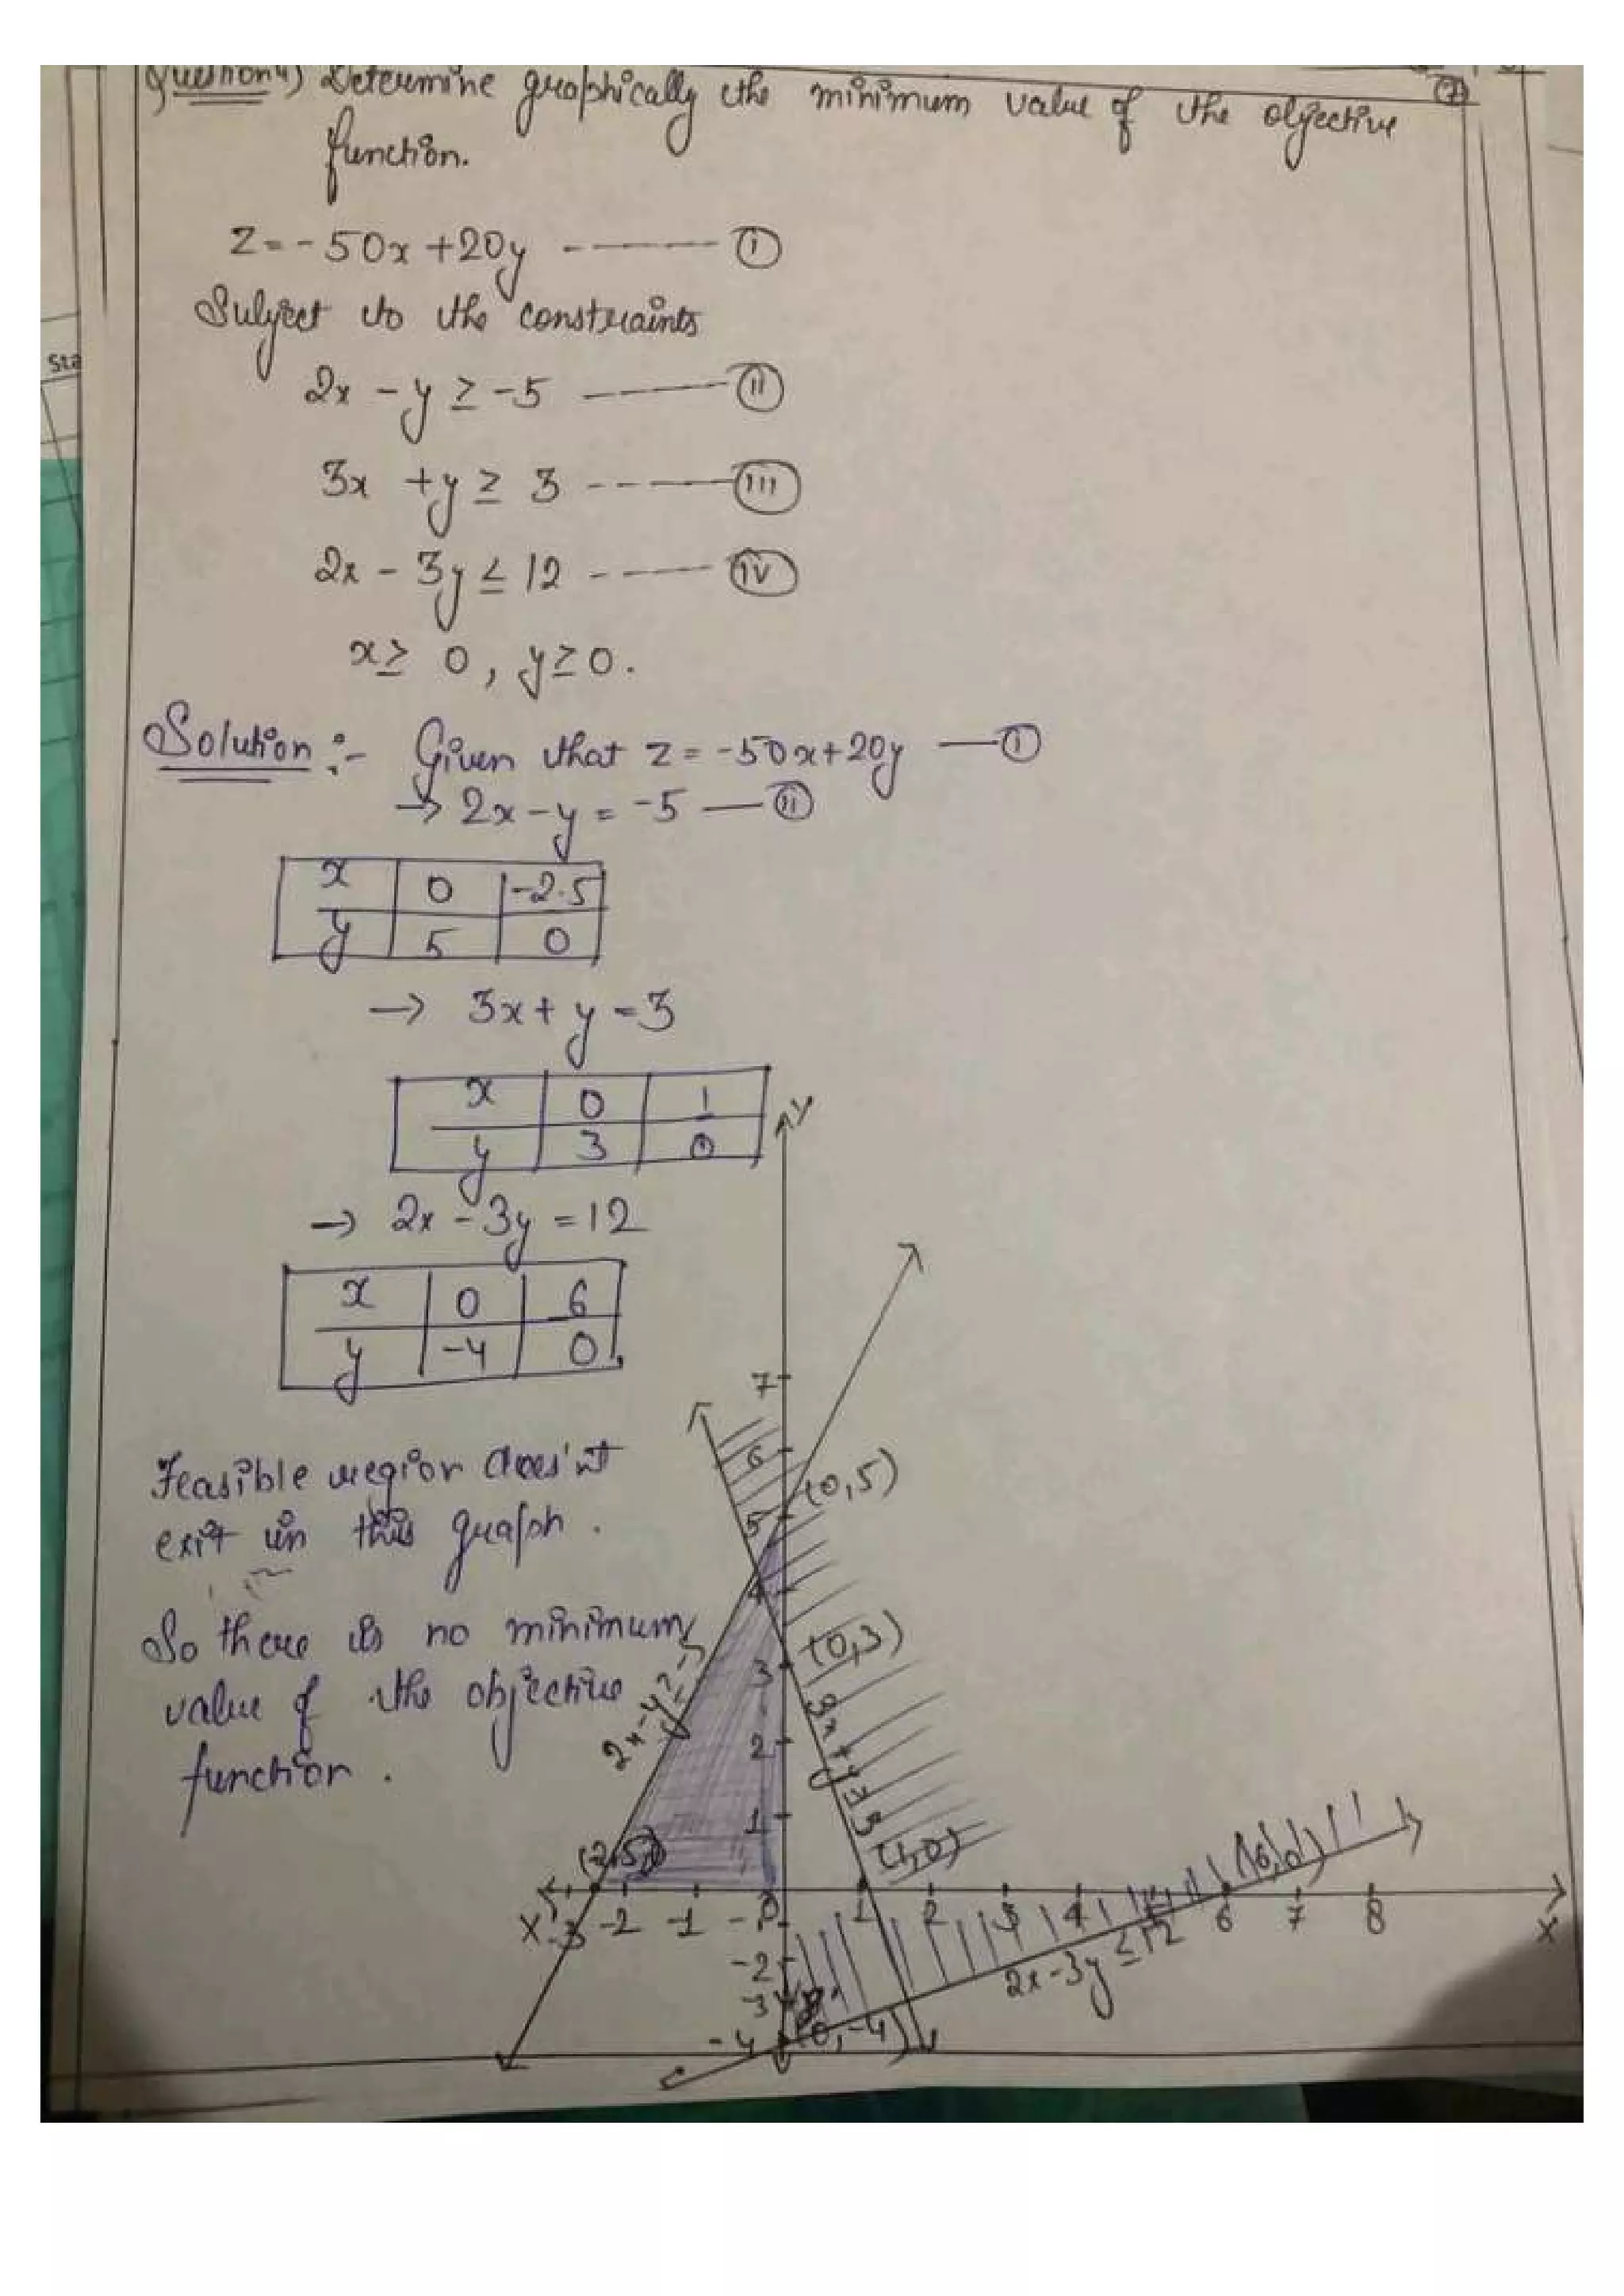 Question 4) Determine graphically the minimum value of the objective
(7)
function.
Z = -50x + 20y ------- (i)
Subject to the constraints
2x - y ≥ -5 ------- (ii)
3x + y ≥ 3 ------- (iii)
2x - 3y ≤ 12 ------- (iv)
x ≥ 0, y ≥ 0.
Solution :- Given that z = -50x + 20y — (i)
→ 2x - y = -5 — (ii)
x 0 -2.5
y 5 0
→ 3x + y = 3
x 0 1
y 3 0
→ 2x - 3y = 12
x 0 6
y -4 0
Feasible region does'nt
exit in this graph.
So there is no minimum
value of the objective
function.
Y
7
6
5
4
3
2
1
(0,5)
(0,3)
2x-y≥-5
3x+y≥3
(2.5,0)
(1,0)
(6,0)
X -3 -2 -1 0 1 2 3 4 5 6 7 8 X
-1
-2
-3
-4
(0,-4)
2x-3y≤12